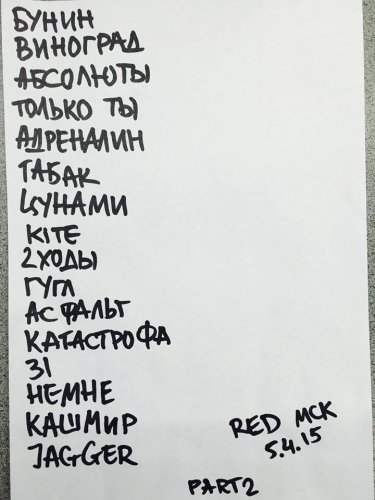 БУНИН
ВИНОГРАД
АБСОЛЮТЫ
ТОЛЬКО ТЫ
АДРЕНАЛИН
ТАБАК
ЦУНАМИ
KITE
2ХОДЫ
ГУГЛ
АСФАЛЬТ
КАТАСТРОФА
31
НЕМНЕ
КАШМИР
JAGGER
RED МСК
5.4.15
PART2